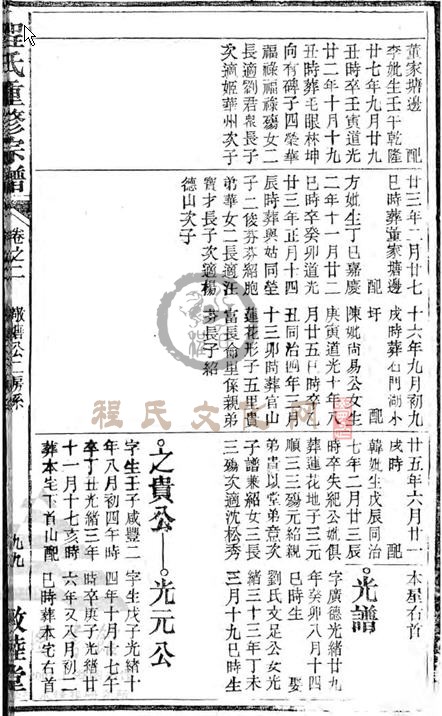 董家塘邊 配
李妣生壬午乾隆
廿七年九月廿九
丑時卒壬寅道光
廿二年十月十九
丑時葬毛眼林坤
向有碑子四榮華
福祿福祿殤女二
長適劉君眾長子
次適姬華州次子
廿三年二月廿七
巳時葬董家塘邊
配
方妣生丁巳嘉慶
二年十一月廿二
巳時卒癸卯道光
廿三年正月十四
辰時葬與姑同塋
子二俊芬芬紹胞
弟華女二長適汪
寳才長子次適楊
德山次子
十六年九月初九
戌時葬石門湖小
圩 配
陳妣尚易公女生
庚寅道光十年八
月廿五巳時卒乙
丑同治四年三月
十三卯時葬官山
蓮花形子五里貴
富長倫里係親弟
芬長子紹
廿五年六月廿一
戌時 配
韓妣生戊辰同治
七年二月廿三辰
時卒失紀公妣俱
葬蓮花地子三元
順三三殤元紹親
弟貴以堂弟意次
子譜兼紹女三長
三殤次適沈松秀
之貴公
字生壬子咸豐二
年八月初四午時
卒丁丑光緒三年
十一月十七亥時
葬本宅下首山配
木星右首
光譜
字廣德光緒廿九
年癸卯八月十四
巳時生 娶
劉氏文足公女光
緒三十三年丁未
三月十九巳時生
光元公
字生戊子光緒十
四年十月十七午
時卒庚子光緒廿
六年又八月初二
巳時葬本宅右首
程氏重修宗譜
卷之二
公二房系
九九
敦睦堂
程氏文化网